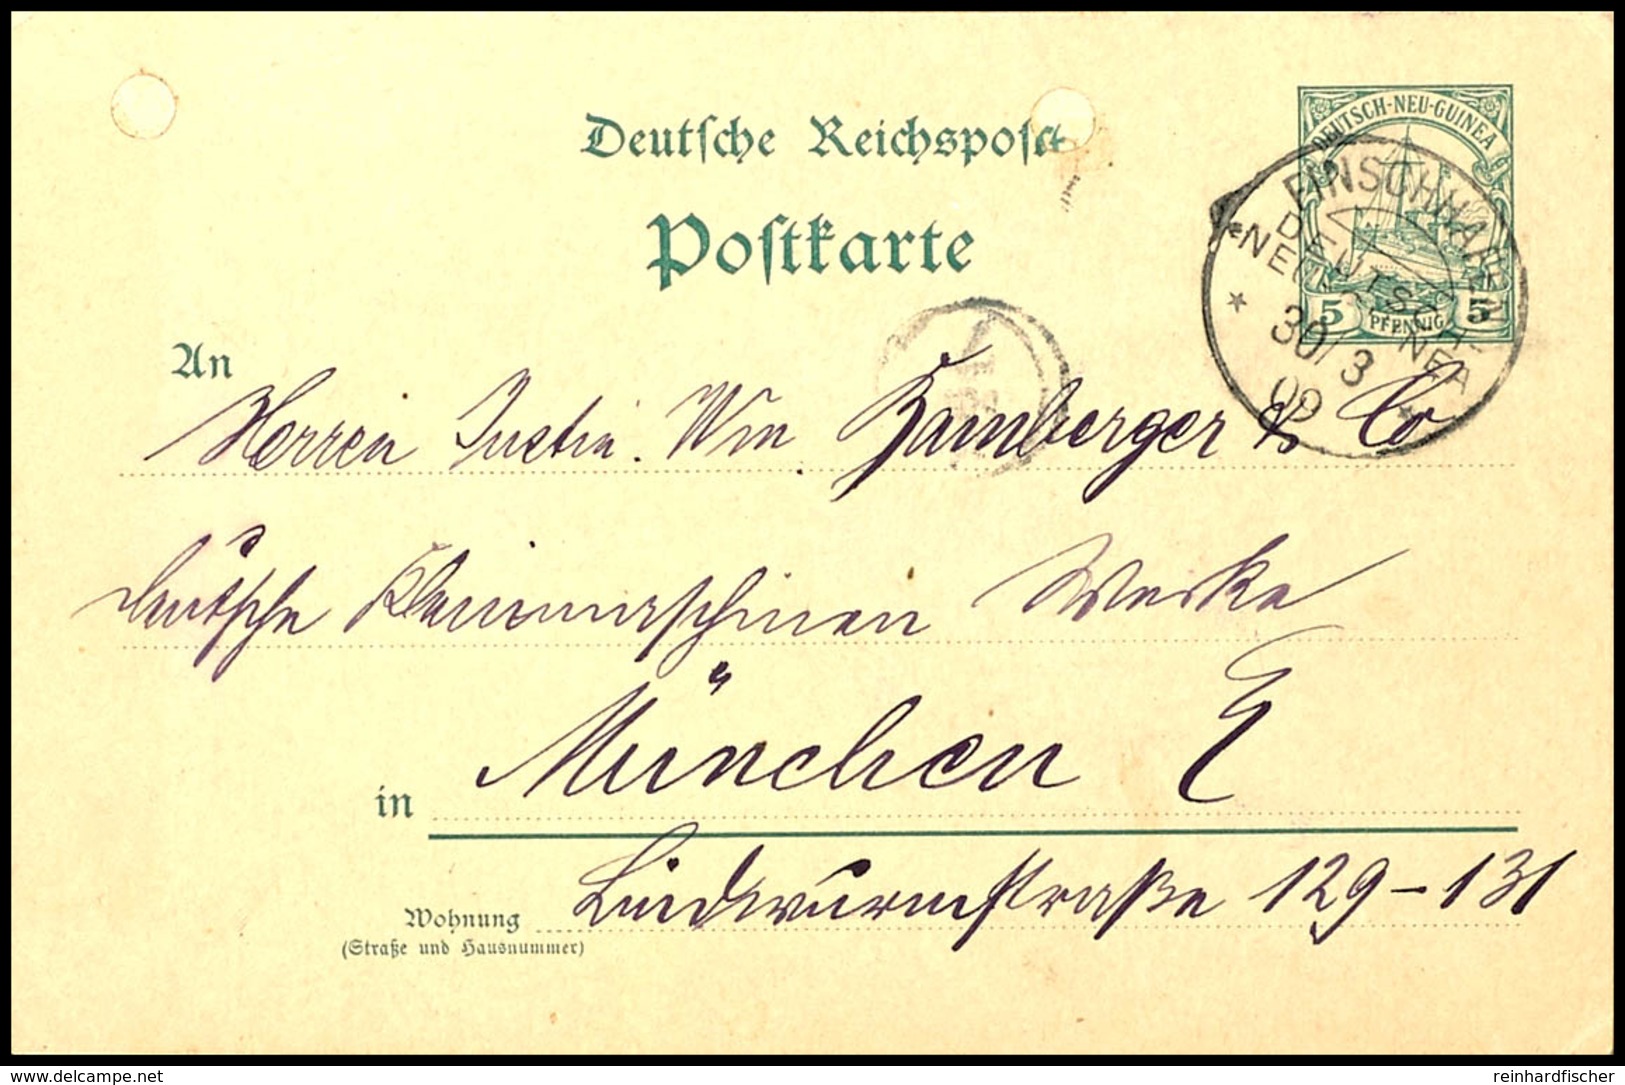 Deutsche Reichspost
Postkarte
DEUTSCH-NEU-GUINEA
5 PFENNIG 5
FINSCHHAFEN
DEUTSCH-
NEU-GUINEA
30/3
09
An
Herren Justin. Wm. Bamberger & Co
Deutsche Kleinmaschinen Werke
in München
Lindwurmstraße 129-131
Wohnung
(Straße und Hausnummer)
delcampe.net
reinhardfischer